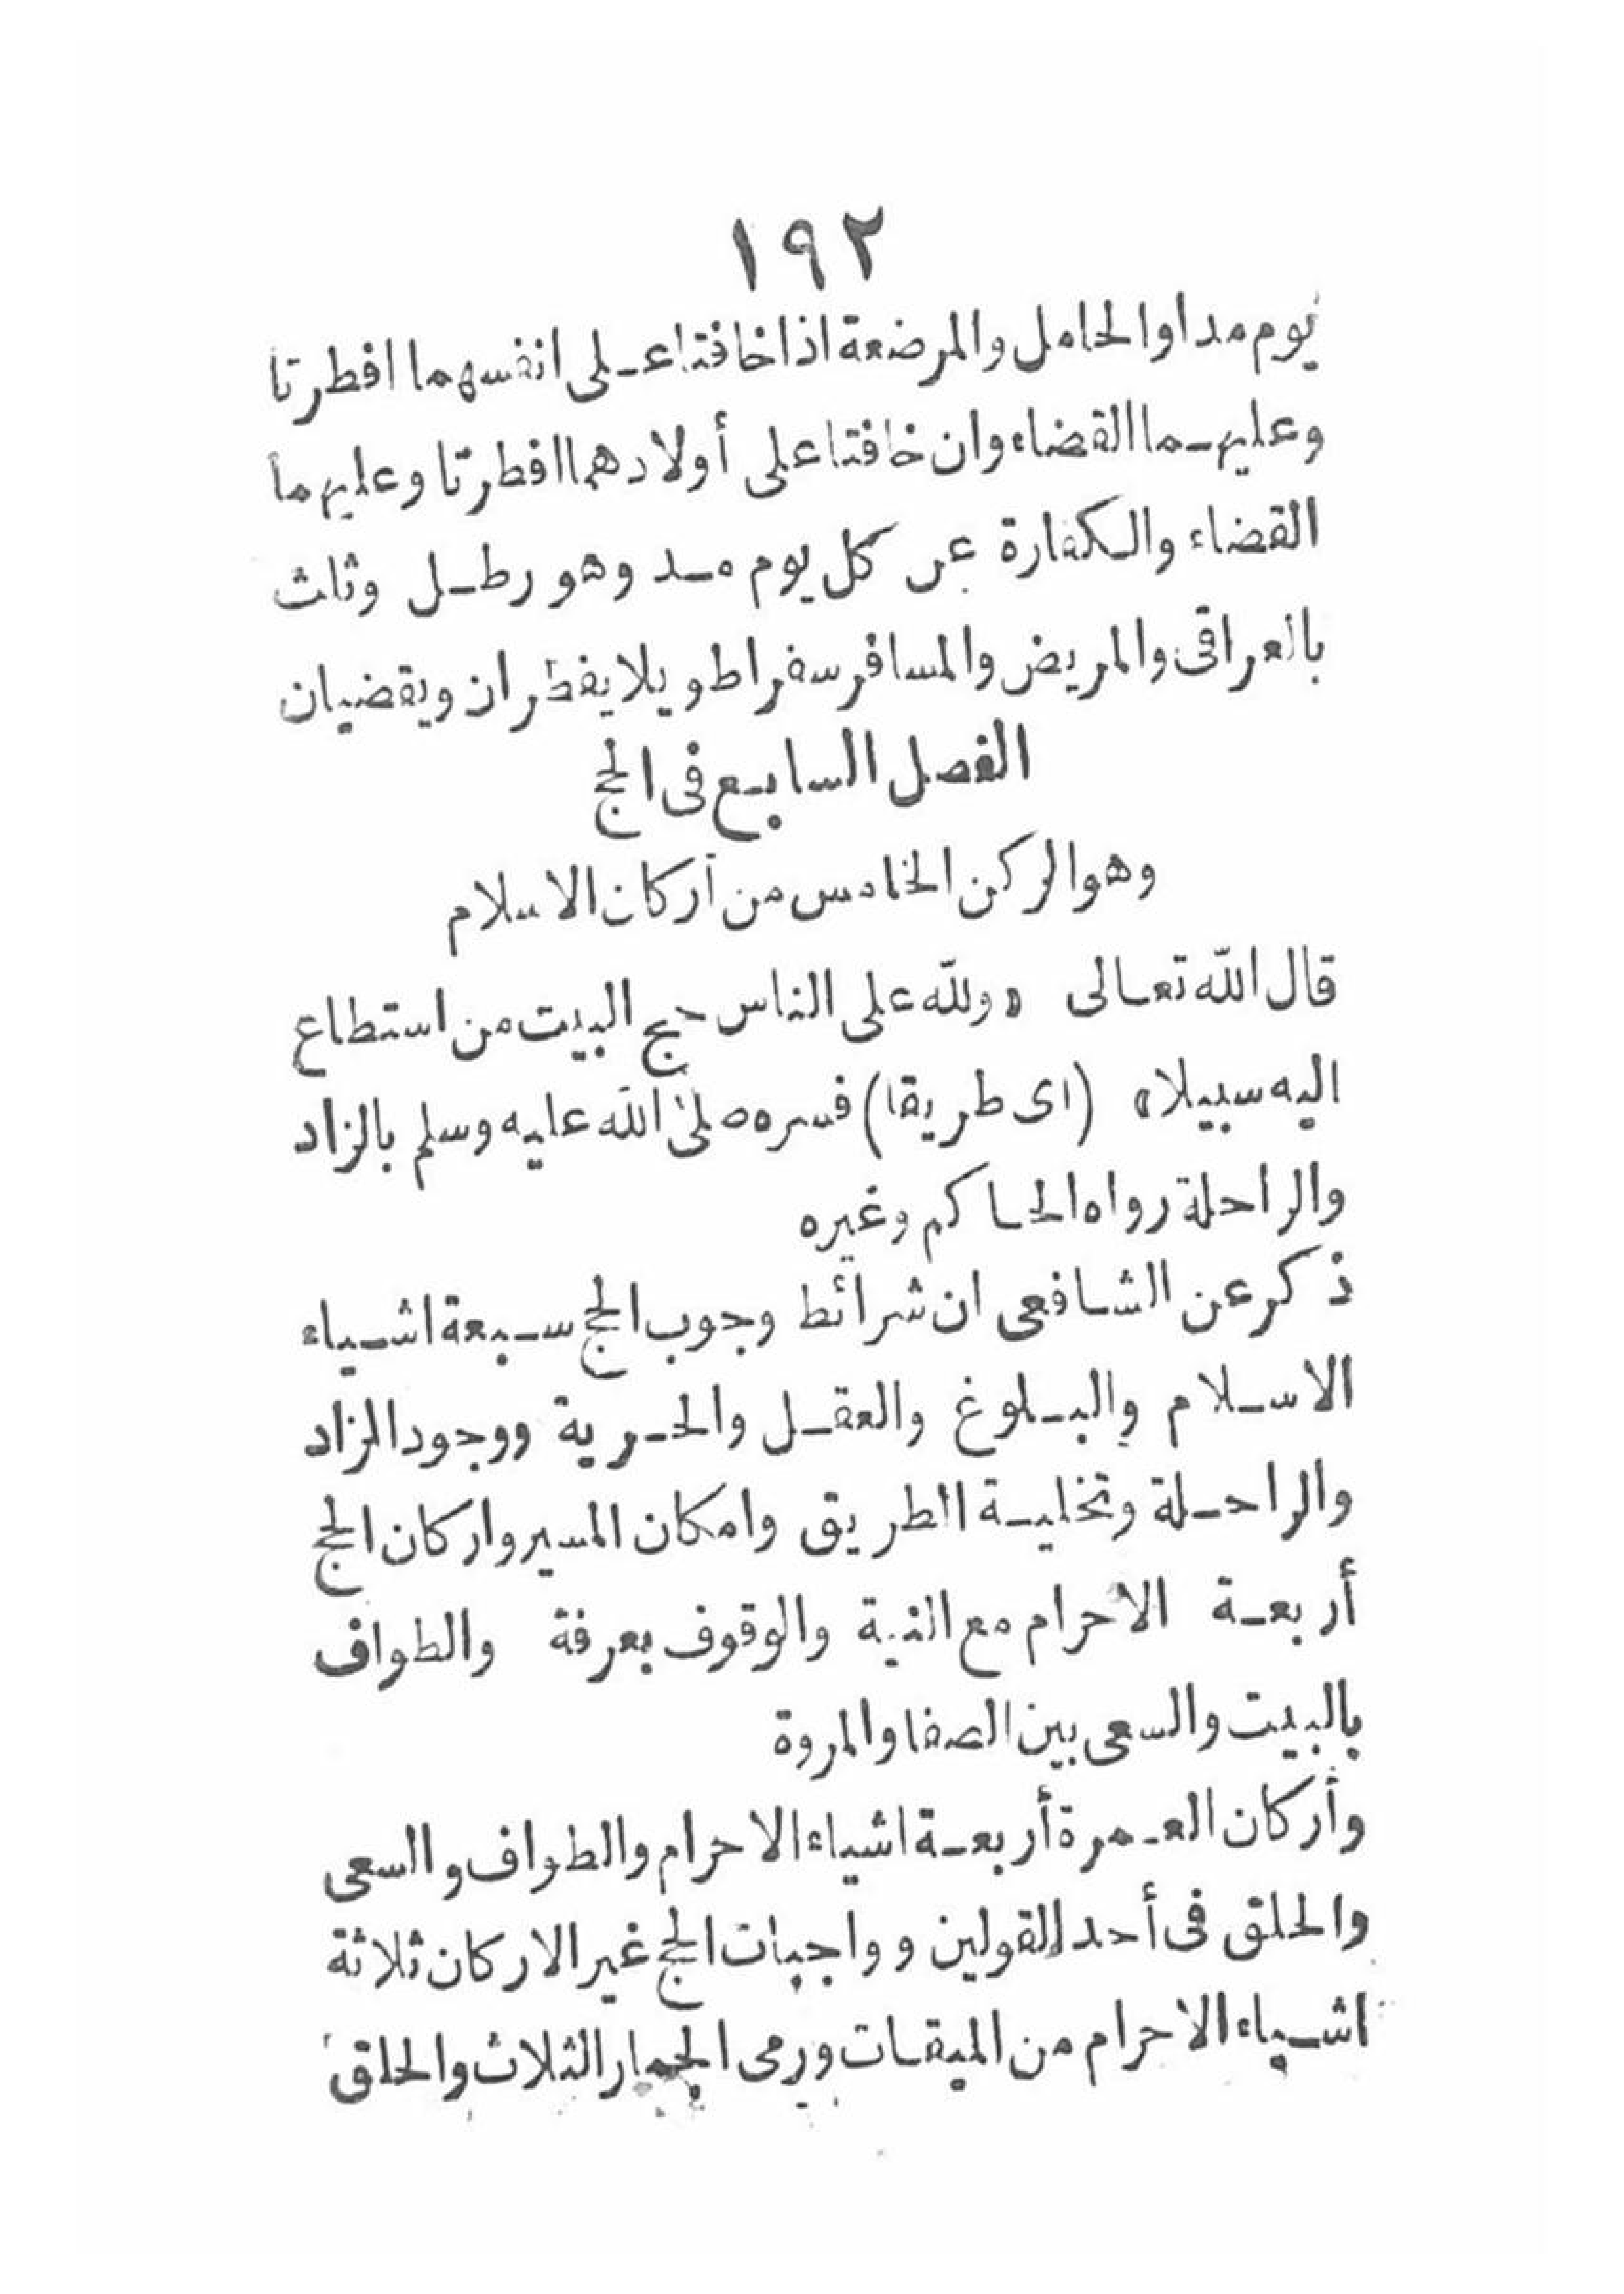 ١٩٢
يوم مدا والحامل والمرضعة اذا خافتا على انفسهما افطرتا
وعليهما القضاء وان خافتا على أولادهما افطرتا وعليهما
القضاء والكفارة عن كل يوم مد وهو رطل وثلث
بالعراقى والمريض والمسافر سفرا طويلا يفطران ويقضيان
الفصل السابع فى الحج
وهو الركن الخامس من أركان الاسلام
قال الله تعالى « ولله على الناس حج البيت من استطاع
اليه سبيلا » (اى طريقا) فسره صلى الله عليه وسلم بالزاد
والراحلة رواه الحاكم وغيره
ذكر عن الشافعى ان شرائط وجوب الحج سبعة اشياء
الاسلام والبلوغ والعقل والحرية ووجود الزاد
والراحلة وتخلية الطريق وامكان المسير واركان الحج
أربعة الاحرام مع النية والوقوف بعرفة والطواف
بالبيت والسعى بين الصفا والمروة
وأركان العمرة أربعة اشياء الاحرام والطواف والسعى
والحلق فى أحد القولين وواجبات الحج غير الاركان ثلاثة
اشياء الاحرام من الميقات ورمى الجمار الثلاث والحلق